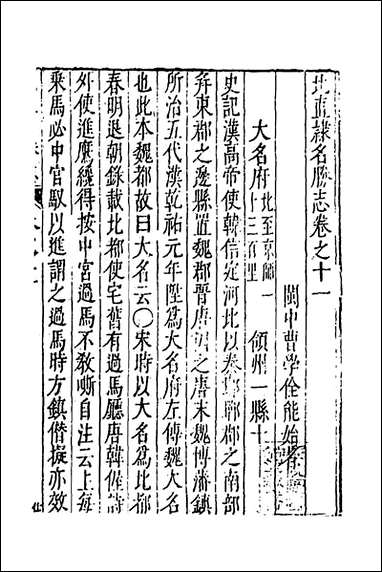 北直隸名勝志卷之十一
閩中曹學佺能始
大名府北至京師一千三百里 領州一縣十
史記漢高帝使韓信定河北以秦東郡之南部
幷東郡之邊縣置魏郡晉唐因之唐末魏博藩鎮
所治五代漢乾祐元年陞為大名府左傳魏大名
也此本魏都故曰大名云〇宋時以大名為北都
春明退朝錄載北都使宅舊有過馬廳唐韓偓詩
外使進鷹纔得按中宮過馬不敎嘶自注云上每
乘馬必中官馭以進謂之過馬時方鎮僭擬亦效